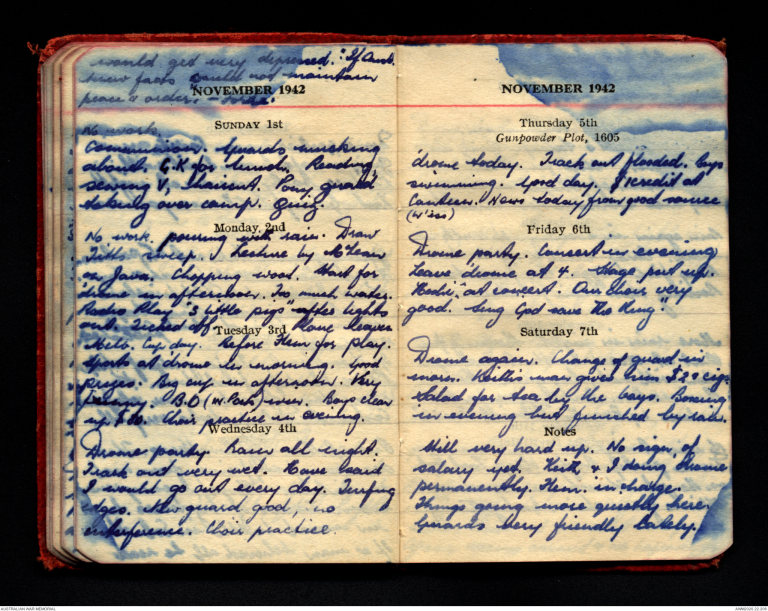 would get very depressed. "If Aust.
new facts could not maintain
peace & order.
NOVEMBER 1942
SUNDAY 1st
No work.
Communion. Guards mucking
about. G.K for lunch. Reading,
sewing V, haircut. Pony guard
taking over camp.
Monday, 2nd
No work pouring with rain. Draw
Titts sweep. Lecture by McLean
on Java. Chopping wood. Start for
drome in afternoon. Too much water.
Radio Play "3 little pigs" after lights
out. Ticked off. Plane leaves
Tuesday 3rd
Melb. Cup day. Before Hem for play.
Sports at drome in morning. Good
prizes. Big cup in afternoon. Very
funny. B.O (W. Park) won. Boys clean
up. Choir practice in evening.
Wednesday 4th
Drome party. Rain all night.
Track out very wet. Have heard
I would go out every day.
edges. New guard good, no
interference. Choir practice.
NOVEMBER 1942
Thursday 5th
Gunpowder Plot, 1605
drome today. Track out flooded. Boys
swimming. Good day. $1 credit at
Canteen. News today from good source
(W'less)
Friday 6th
Drome party. Concert in evening
Leave drome at 4. Stage put up.
at concert. Our choir very
good. Sing God save The King."
Saturday 7th
Drome again. Change of guard in
morn. Keith's man gives him
Salad for tea by the boys. Boxing
in evening but finished by rain.
Notes
Still very hard up. No sign of
salary yet. Keith & I doing drome
permanently. Hem. in charge.
Things going more quickly here.
Guards very friendly lately.
AUSTRALIAN WAR MEMORIAL